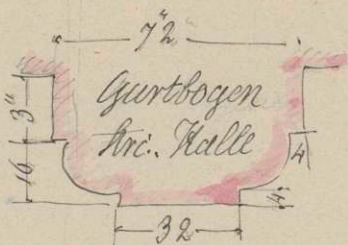 7'2"
Gurtbogen
Krc. Halle
3"
16
4
4
32